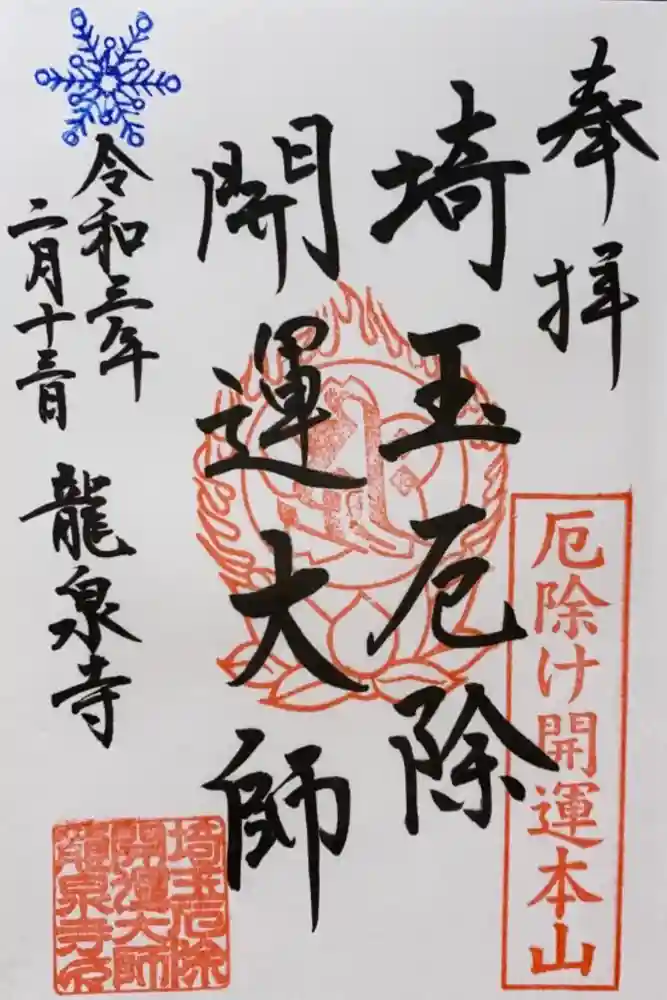 奉拝
厄除け開運本山
埼玉厄除
開運大師
令和三年
二月十三日
龍泉寺
埼玉厄除
開運大師
龍泉寺印